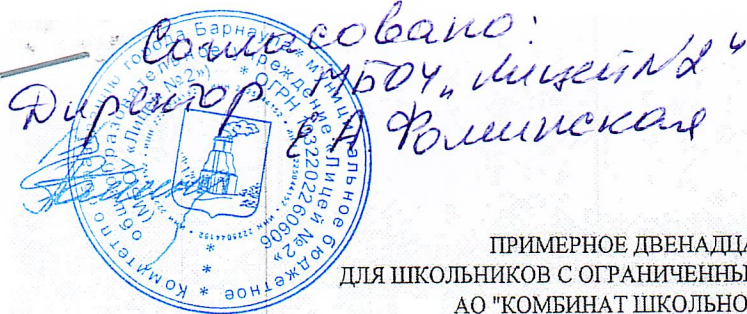 Согласовано:
Директор МБОУ „Лицей №2"
Е А Фоминская
Комитет по образованию города Барнаула * муниципальное бюджетное
общеобразовательное учреждение «Лицей №2»
(МБОУ «Лицей №2») * ОГРН
ПРИМЕРНОЕ ДВЕНАДЦА
ДЛЯ ШКОЛЬНИКОВ С ОГРАНИЧЕННЫ
АО "КОМБИНАТ ШКОЛЬНО